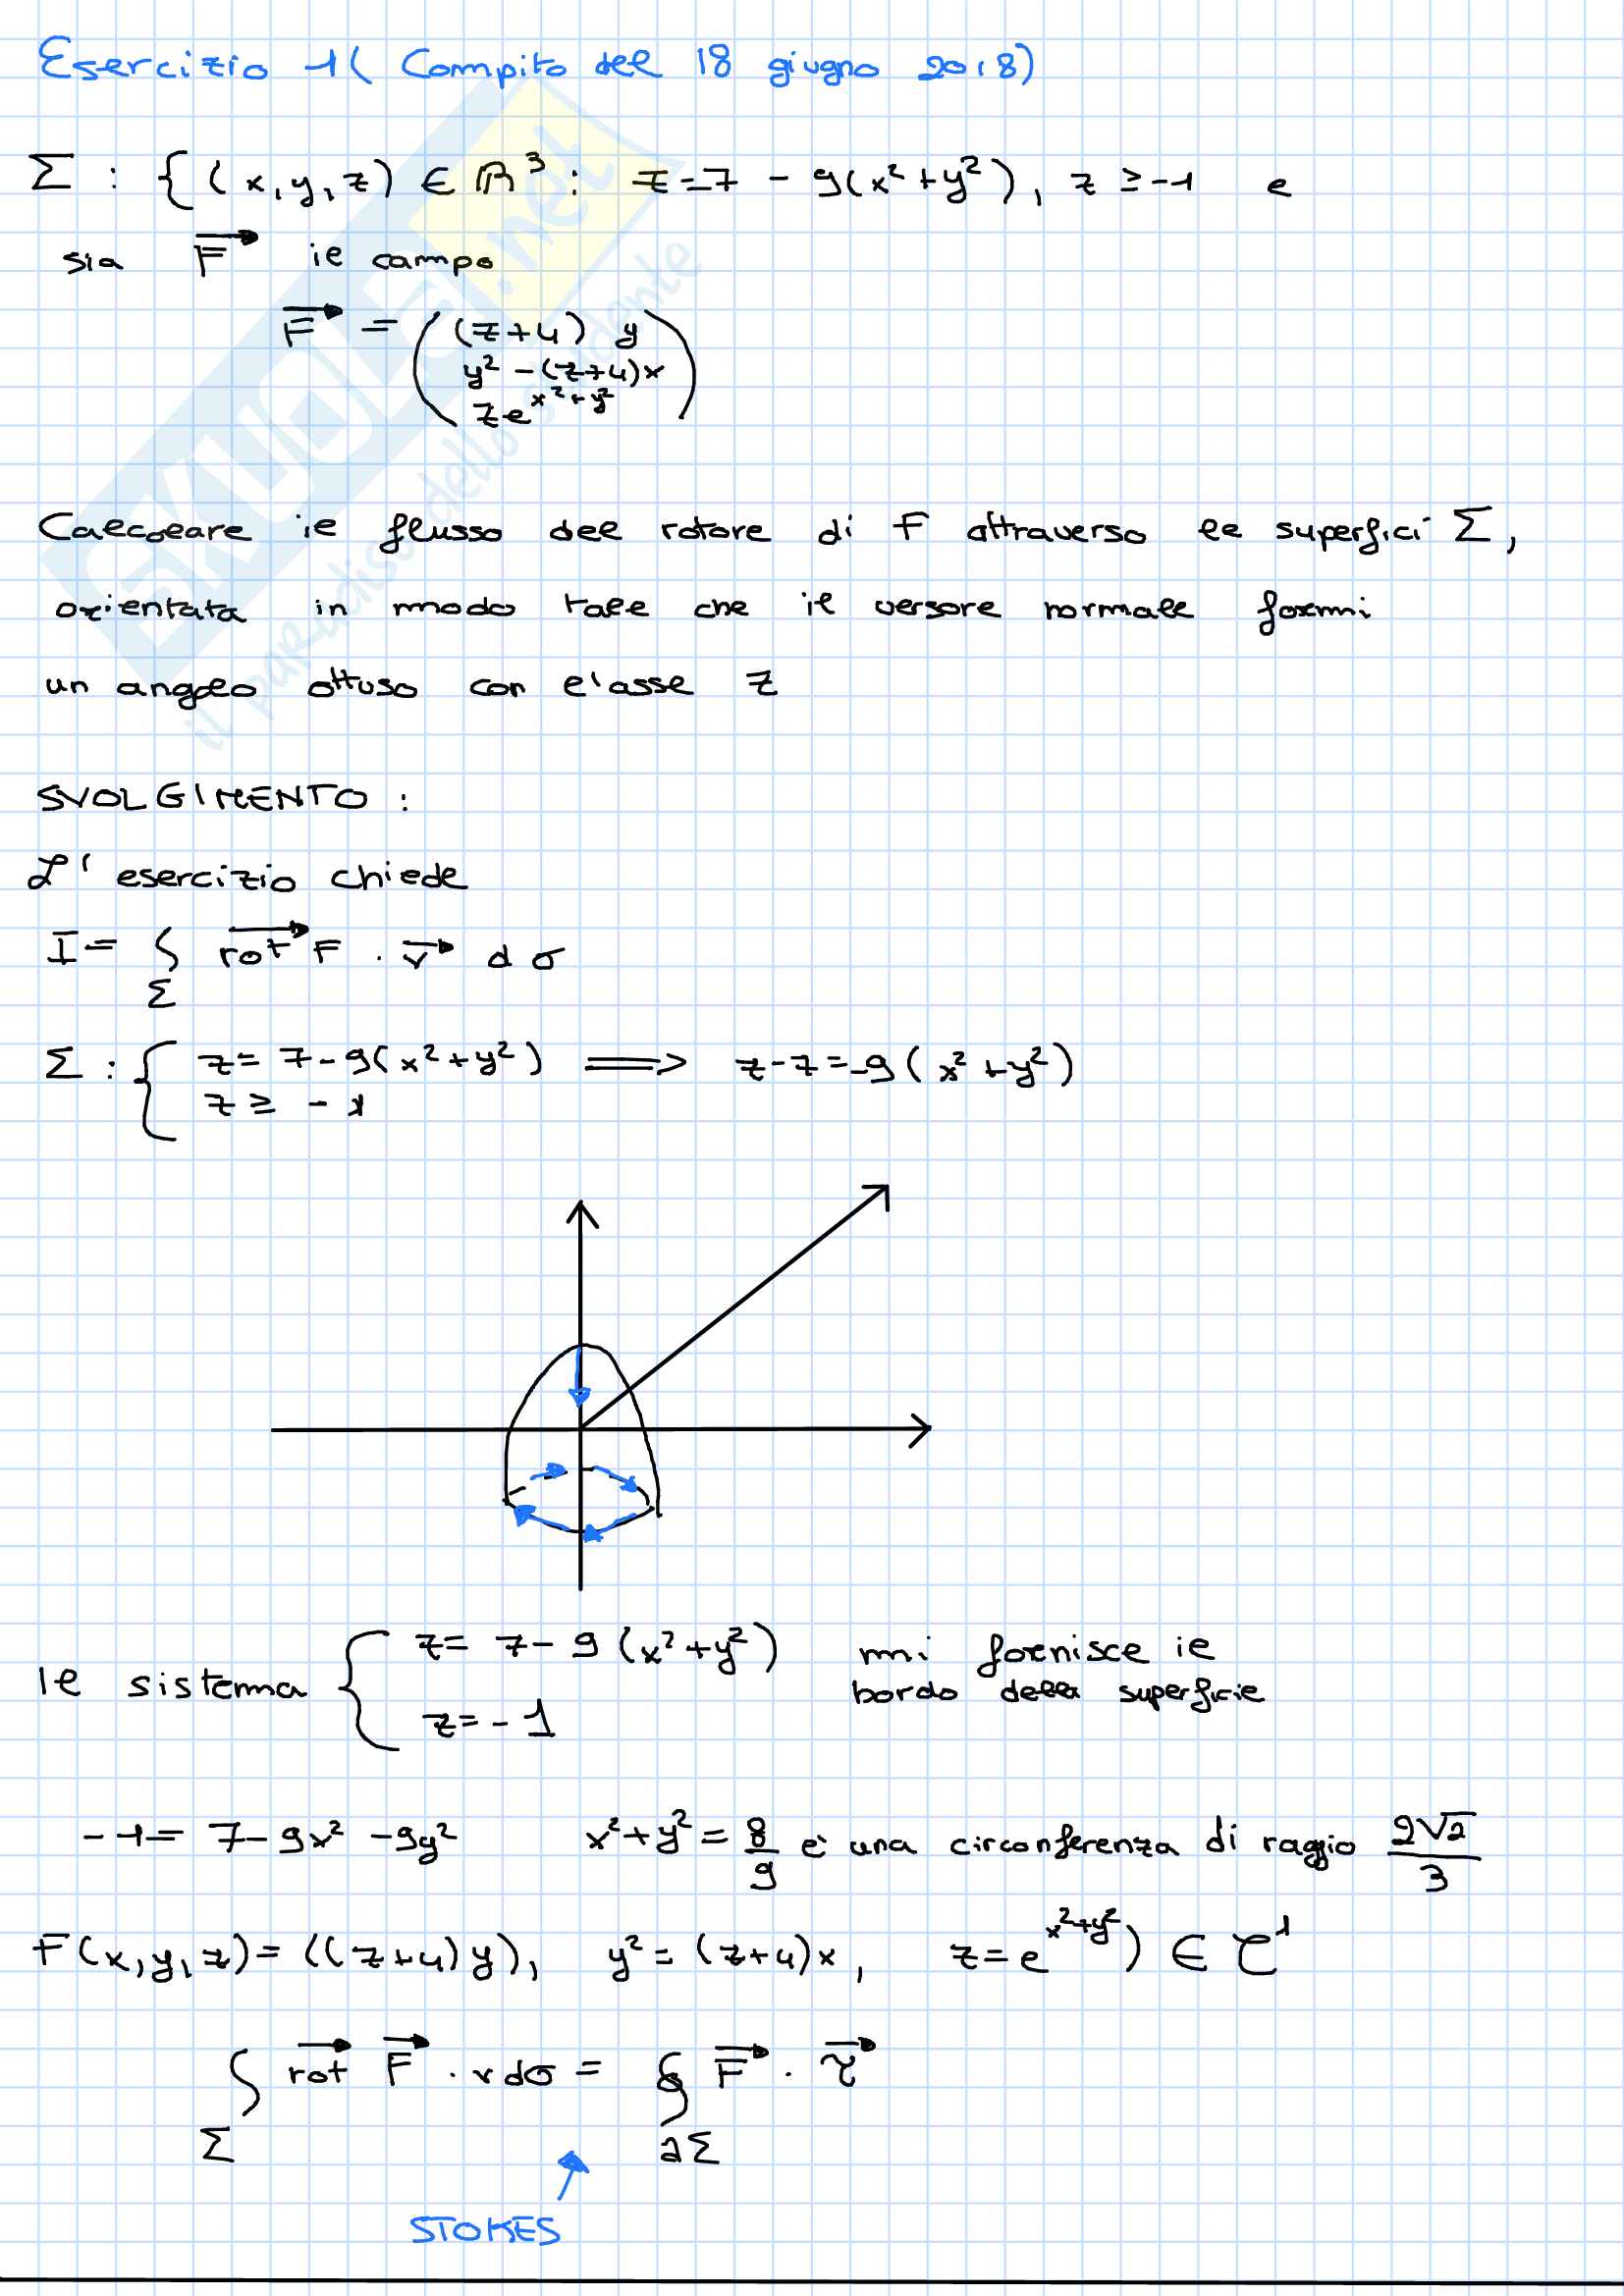 Esercizio 1 ( Compito del 18 giugno 2018)
Σ : { (x, y, z) ∈ ℝ³ : z = 7 - 9(x² + y²), z ≥ -1 e
sia F⃗ il campo
F⃗ = ( (z+4) y
y² - (z+4)x
z e^{x²+y²} )
Calcolare il flusso del rotore di F attraverso le superfici Σ,
orientata in modo tale che il versore normale formi
un angolo ottuso con l'asse z
SVOLGIMENTO :
L' esercizio chiede
I = ∫_Σ rot⃗ F · ν⃗ dσ
Σ : { z = 7 - 9(x² + y²) ⟹ z - 7 = -9(x² + y²)
z ≥ -1
Il sistema { z = 7 - 9(x² + y²) mi fornisce il
z = -1 bordo della superficie
-1 = 7 - 9x² - 9y² x² + y² = 8/9 è una circonferenza di raggio 2√2/3
F(x, y, z) = ((z+4) y), y² = (z+4)x, z = e^{x²+y²}) ∈ C¹
∫_Σ rot⃗ F⃗ · ν dσ = ∮_∂Σ F⃗ · τ⃗
STOKES
SKUOLA.net
il paradiso dello studente